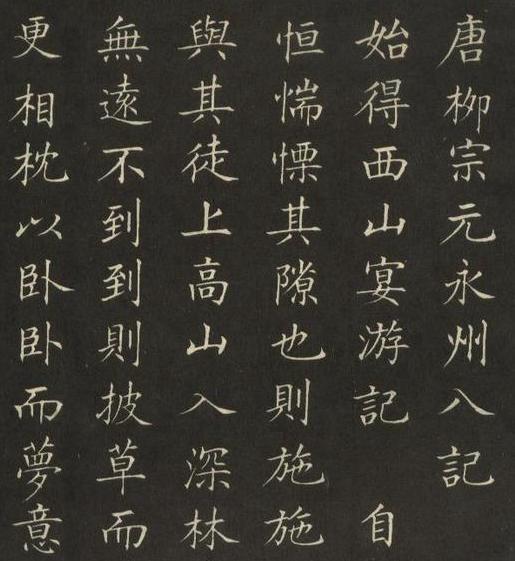 唐柳宗元永州八記
始得西山宴游記 自
恒惴慄其隙也則施施
與其徒上高山入深林
無遠不到到則披草而
更相枕以卧卧而夢意